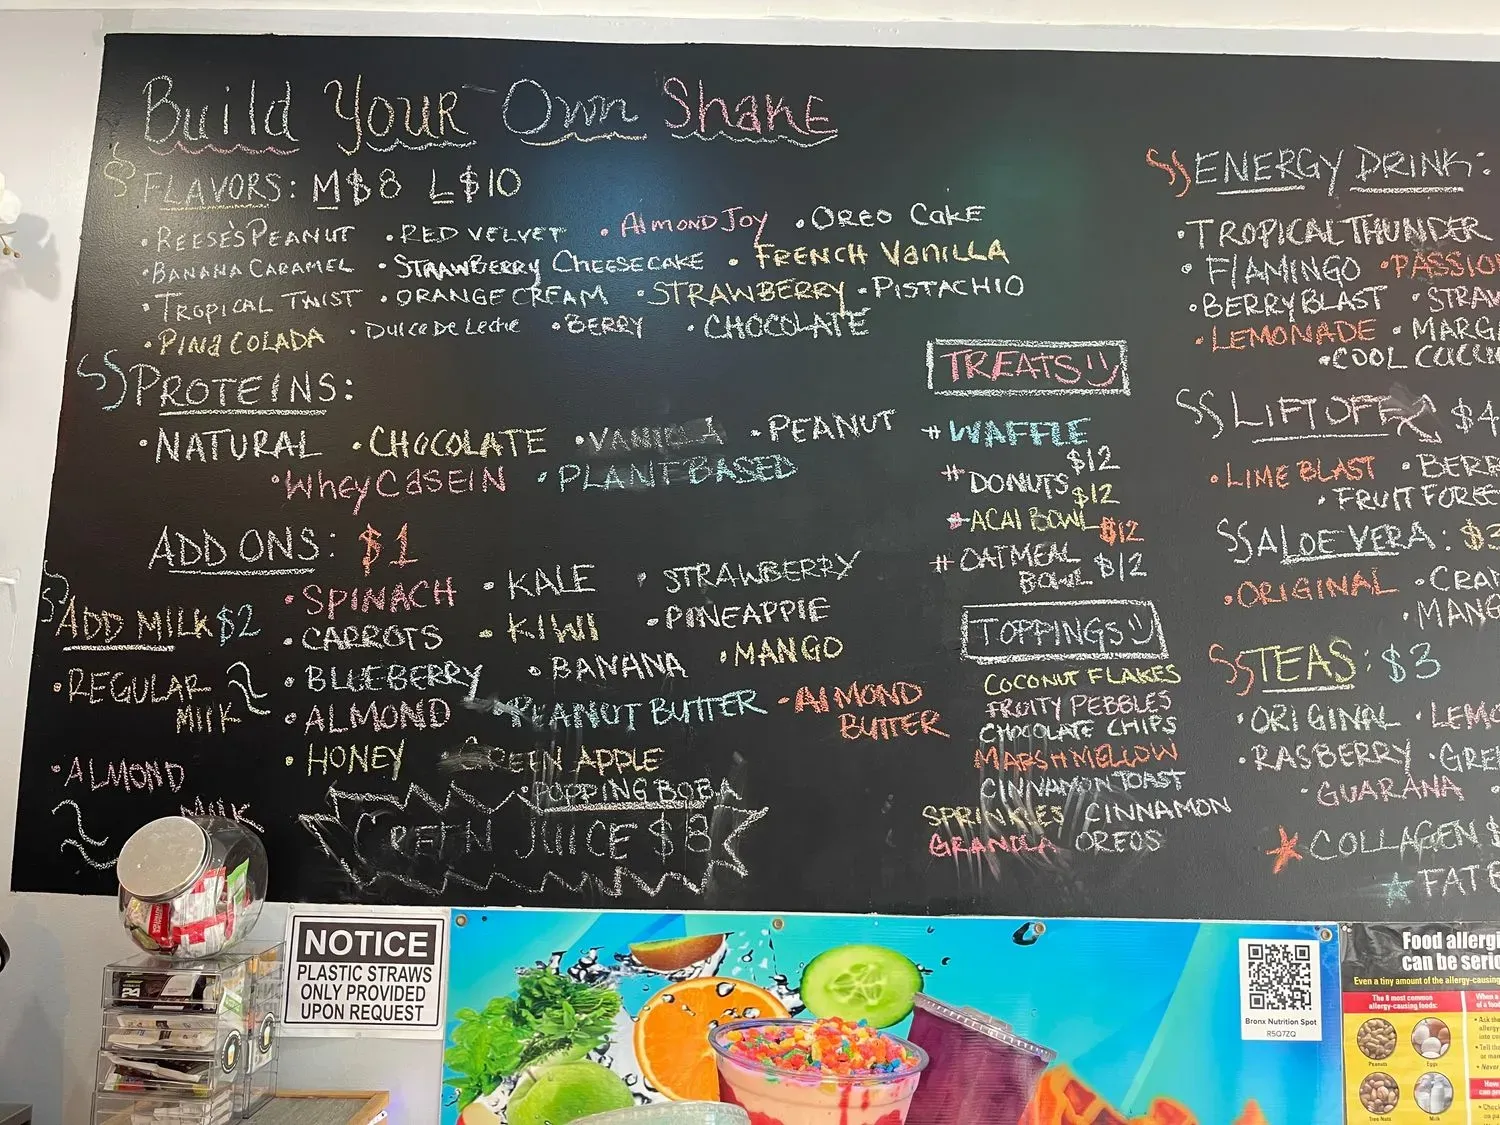 Build Your Own Shake
FLAVORS: M$8 L$10
•REESE'S PEANUT •RED VELVET •ALMOND JOY •OREO CAKE
•BANANA CARAMEL •STRAWBERRY CHEESECAKE •FRENCH VANILLA
•TROPICAL TWIST •ORANGE CREAM •STRAWBERRY •PISTACHIO
•PINA COLADA •Dulce De Leche •BERRY •CHOCOLATE
PROTEINS:
•NATURAL •CHOCOLATE •VANILLA •PEANUT
•Whey CASEIN •PLANT BASED
ADD ONS: $1
•SPINACH •KALE •STRAWBERRY
•CARROTS •KIWI •PINEAPPIE
•BLUEBERRY •BANANA •MANGO
•ALMOND •PEANUT BUTTER •AlMOND BUTTER
•HONEY GREEN APPLE
•POPPING BOBA
GREEN JUICE $8
ADD MILK $2
•REGULAR
MIlK
•ALMOND
MILK
TREATS
#WAFFLE
$12
#DONUTS
$12
#ACAI BOWL
$12
#OATMEAL
BOWL $12
TOPPINGS
COCONUT FLAKES
FRUITY PEBBLES
CHOCOLATE CHIPS
MARSHMELLOW
CINNAMON TOAST
SPRINKLES CINNAMON
GRANOLA OREOS
ENERGY DRINK:
•TROPICAL THUNDER
•FlAMINGO •PASSIO
•BERRY BLAST •STRAW
•LEMONADE •MARG
•COOL CUCU
LIFTOFF $4
•LIME BLAST •BERR
•FRUIT FOR
ALOE VERA: $3
•ORIGINAL •CRAN
•MANG
TEAS: $3
•ORIGINAL •LEMO
•RASBERRY •GRE
•GUARANA
COLLAGEN $
FAT B
NOTICE
PLASTIC STRAWS
ONLY PROVIDED
UPON REQUEST
Bronx Nutrition Spot
R5Q7ZQ
Food allergi
can be serio
Even a tiny amount of the allergy-causing
The 8 most common
allergy-causing foods:
Peanuts
Eggs
Tree Nuts
Milk